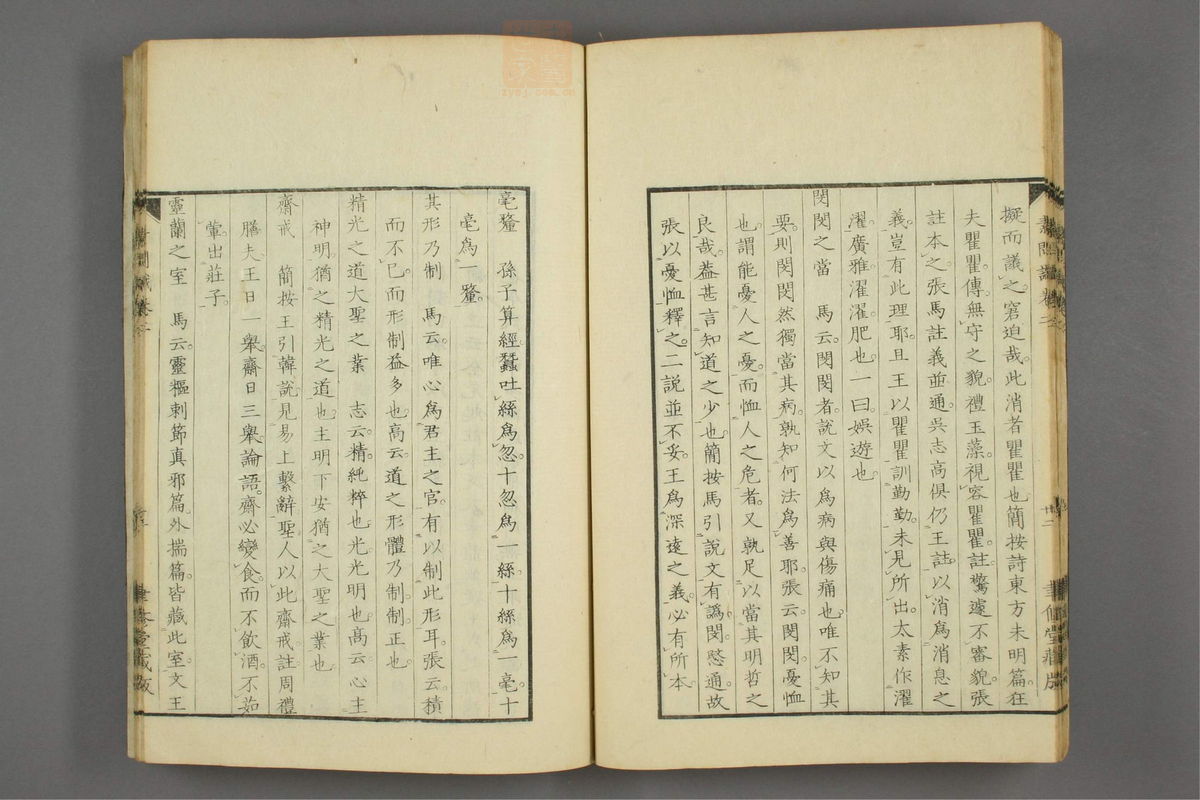 擬而議之窘迫哉此消者瞿瞿也簡按詩東方未明篇狂
夫瞿瞿傳無守之貌禮玉藻視容瞿瞿註驚遽不審貌張
註本之張馬註義並通吳志高俱仍王註以消爲消息之
義豈有此理耶且王以瞿瞿訓勤勤未見所出太素作濯
濯廣雅濯濯肥也一曰娛遊也
閔閔之當　馬云閔閔者說文以爲病與傷痛也唯不知其
要則閔閔然獨當其病孰知何法爲善耶張云閔閔憂恤
也謂能憂人之憂而恤人之危者又孰足以當其明哲之
良哉蓋甚言知道之少也簡按馬引說文有譌閔愍通故
張以憂恤釋之二說並不妥王爲深遠之義必有所本
毫釐　孫子算經蠶吐絲爲忽十忽爲一絲十絲爲一毫十
毫爲一釐
其形乃制　馬云唯心爲君主之官有以制此形耳張云積
而不已而形制益多也高云道之形體乃制制正也
精光之道大聖之業　志云精純粹也光光明也高云心主
神明猶之精光之道也主明下安猶之大聖之業也
齋戒　簡按王引韓說見易上繫辭聖人以此齋戒註周禮
膳夫王日一舉齋日三舉論語齋必變食而不飲酒不茹
葷出莊子
靈蘭之室　馬云靈樞刺節真邪篇外揣篇皆藏此室文王